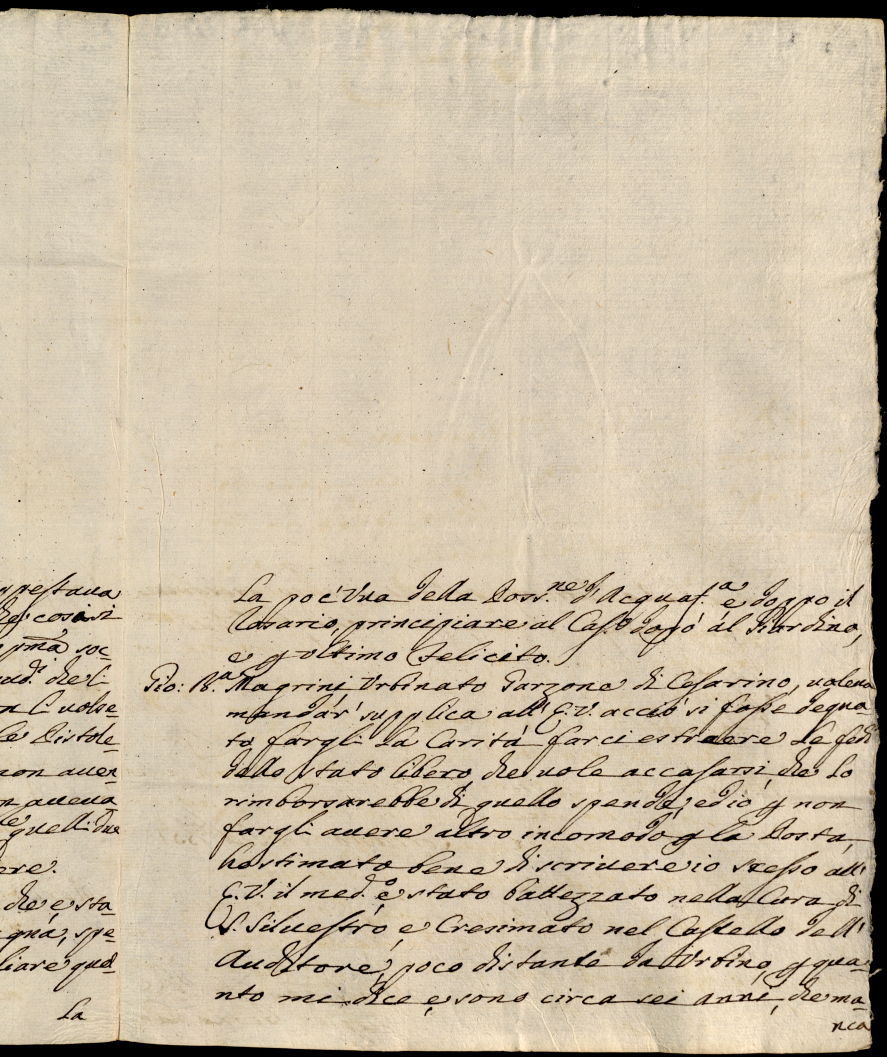 npestaua
he cosi si
pma soc=
ud.i che l
n l'uolse=
le Pistole=
non auen=
n aueua
le quelli due
ere.
che e sta=
gna, spe=
liare qual=
La
La poc'Vua della Poss.ne d'Acquaf.a è doppo il
Rosario, principiare al Cas.o dopò al Giardino,
e p ultimo Felicito.
Gio: B.a Magrini Vrbinato Garzone di Cesarino, uoleua
mandar' supplica all' E.V. acciò si fosse degna=
to fargli la Carità farci estraere le fedi
dello stato libero, che uole accasarsi, che lo
rimborsarebbe di quello spende, ed io p non
fargli auere altro incomodo p la Posta,
ho stimato bene di scriuere io stesso all'
E.V. il med.o è stato battezzato nella Cura di
S. Siluestro, e Cresimato nel Castello dell'
Auditore, poco distante da Vrbino, p qua=
nto mi dice e sono circa sei anni, che ma=
nca